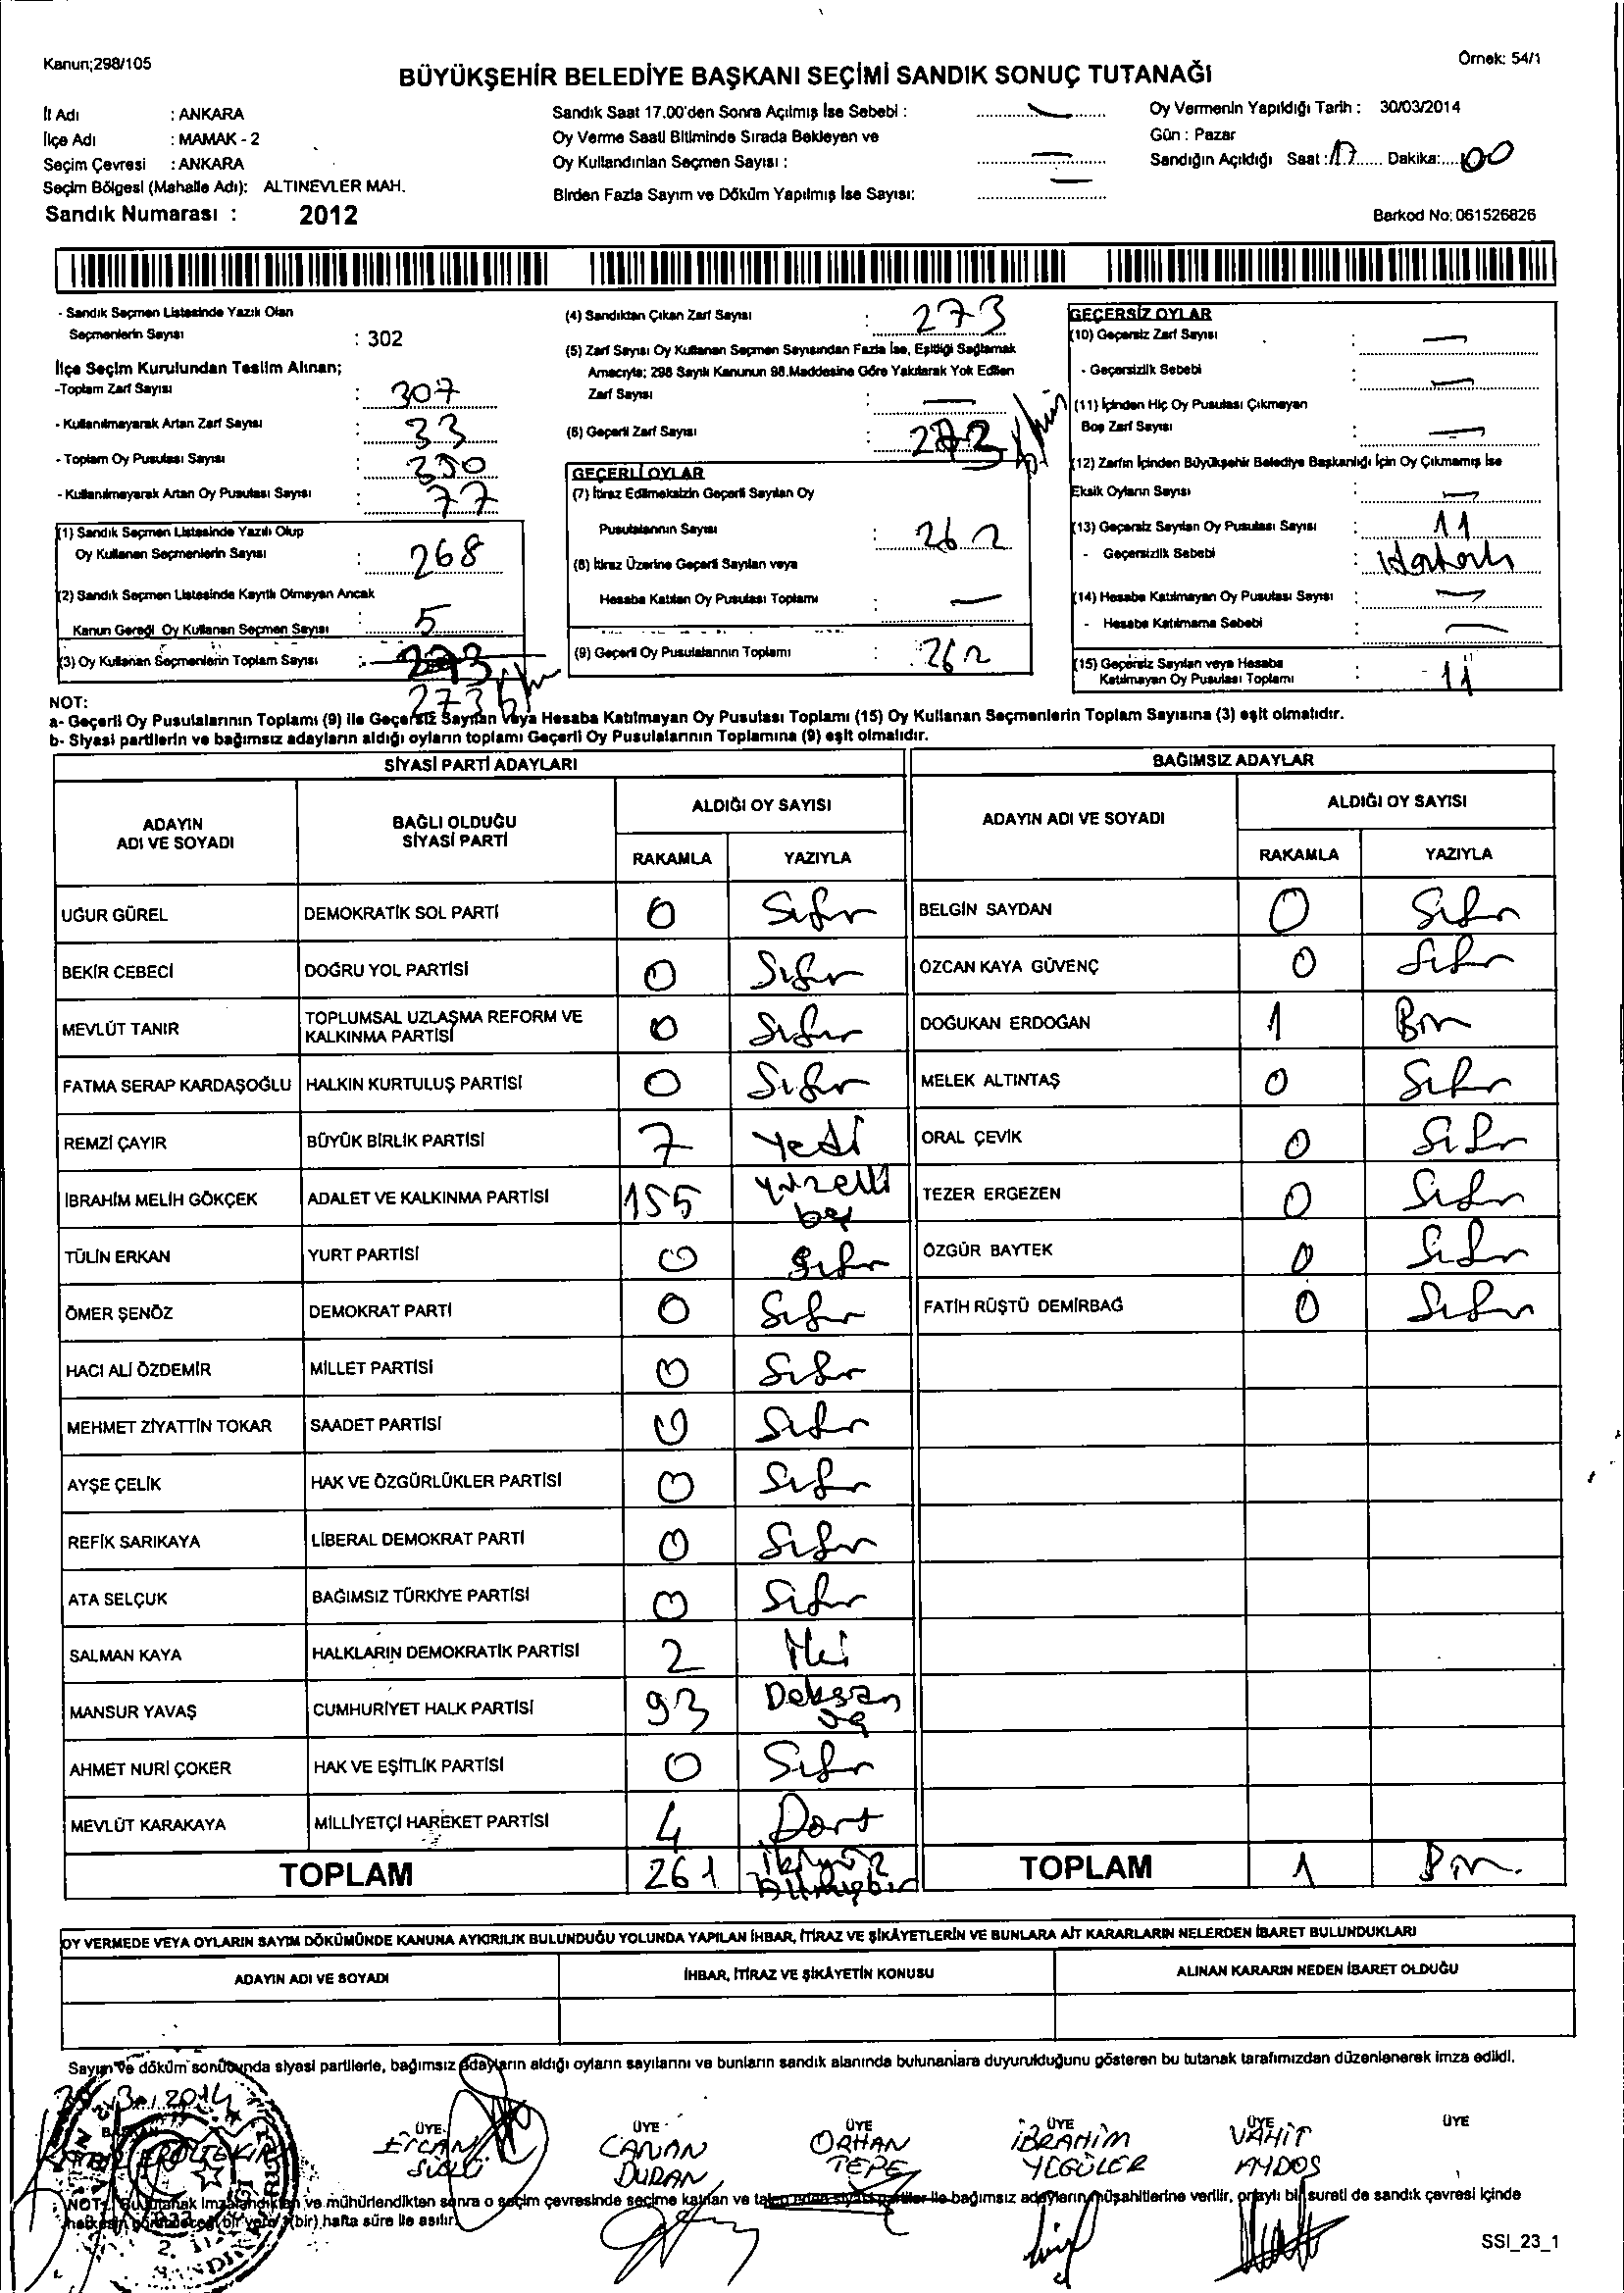 Kanun;298/105
Örnek: 54/1
BÜYÜKŞEHİR BELEDİYE BAŞKANI SEÇİMİ SANDIK SONUÇ TUTANAĞI
İl Adı : ANKARA
İlçe Adı : MAMAK - 2
Seçim Çevresi : ANKARA
Seçim Bölgesi (Mahalle Adı): ALTINEVLER MAH.
Sandık Numarası : 2012
Sandık Saat 17.00'den Sonra Açılmış İse Sebebi : —
Oy Verme Saati Bitiminde Sırada Bekleyen ve
Oy Kullandırılan Seçmen Sayısı : —
Birden Fazla Sayım ve Döküm Yapılmış İse Sayısı: —
Oy Vermenin Yapıldığı Tarih : 30/03/2014
Gün : Pazar
Sandığın Açıldığı Saat : 17 Dakika: 00
Barkod No: 061526826
- Sandık Seçmen Listesinde Yazılı Olan
Seçmenlerin Sayısı : 302
İlçe Seçim Kurulundan Teslim Alınan;
-Toplam Zarf Sayısı : 307
- Kullanılmayarak Artan Zarf Sayısı : 33
- Toplam Oy Pusulası Sayısı : 350
- Kullanılmayarak Artan Oy Pusulası Sayısı : 77
(1) Sandık Seçmen Listesinde Yazılı Olup
Oy Kullanan Seçmenlerin Sayısı : 268
(2) Sandık Seçmen Listesinde Kayıtlı Olmayan Ancak
Kanun Gereği Oy Kullanan Seçmen Sayısı : 5
(3) Oy Kullanan Seçmenlerin Toplam Sayısı : 273
273
(4) Sandıktan Çıkan Zarf Sayısı : 273
(5) Zarf Sayısı Oy Kullanan Seçmen Sayısından Fazla İse, Eşitliği Sağlamak
Amacıyla; 298 Sayılı Kanunun 98.Maddesine Göre Yakılarak Yok Edilen
Zarf Sayısı : —
(6) Geçerli Zarf Sayısı : 273
GEÇERLİ OYLAR
(7) İtiraz Edilmeksizin Geçerli Sayılan Oy
Pusulalarının Sayısı : 262
(8) İtiraz Üzerine Geçerli Sayılan veya
Hesaba Katılan Oy Pusulası Toplamı : —
(9) Geçerli Oy Pusulalarının Toplamı : 262
GEÇERSİZ OYLAR
(10) Geçersiz Zarf Sayısı : —
- Geçersizlik Sebebi : —
(11) İçinden Hiç Oy Pusulası Çıkmayan
Boş Zarf Sayısı : —
(12) Zarfın İçinden Büyükşehir Belediye Başkanlığı İçin Oy Çıkmamış İse
Eksik Oyların Sayısı : —
(13) Geçersiz Sayılan Oy Pusulası Sayısı : 11
- Geçersizlik Sebebi : Hatalı
(14) Hesaba Katılmayan Oy Pusulası Sayısı : —
- Hesaba Katılmama Sebebi : —
(15) Geçersiz Sayılan veya Hesaba
Katılmayan Oy Pusulası Toplamı : 11
NOT:
a- Geçerli Oy Pusulalarının Toplamı (9) ile Geçersiz Sayılan veya Hesaba Katılmayan Oy Pusulası Toplamı (15) Oy Kullanan Seçmenlerin Toplam Sayısına (3) eşit olmalıdır.
b- Siyasi partilerin ve bağımsız adayların aldığı oyların toplamı Geçerli Oy Pusulalarının Toplamına (9) eşit olmalıdır.
SİYASİ PARTİ ADAYLARI
ADAYIN ADI VE SOYADI BAĞLI OLDUĞU SİYASİ PARTİ ALDIĞI OY SAYISI
RAKAMLA YAZIYLA
UĞUR GÜREL DEMOKRATİK SOL PARTİ 0 Sıfır
BEKİR CEBECİ DOĞRU YOL PARTİSİ 0 Sıfır
MEVLÜT TANIR TOPLUMSAL UZLAŞMA REFORM VE KALKINMA PARTİSİ 0 Sıfır
FATMA SERAP KARDAŞOĞLU HALKIN KURTULUŞ PARTİSİ 0 Sıfır
REMZİ ÇAYIR BÜYÜK BİRLİK PARTİSİ 7 Yedi
İBRAHİM MELİH GÖKÇEK ADALET VE KALKINMA PARTİSİ 155 yüzelli beş
TÜLİN ERKAN YURT PARTİSİ 0 Sıfır
ÖMER ŞENÖZ DEMOKRAT PARTİ 0 Sıfır
HACI ALİ ÖZDEMİR MİLLET PARTİSİ 0 Sıfır
MEHMET ZİYATTİN TOKAR SAADET PARTİSİ 0 Sıfır
AYŞE ÇELİK HAK VE ÖZGÜRLÜKLER PARTİSİ 0 Sıfır
REFİK SARIKAYA LİBERAL DEMOKRAT PARTİ 0 Sıfır
ATA SELÇUK BAĞIMSIZ TÜRKİYE PARTİSİ 0 Sıfır
SALMAN KAYA HALKLARIN DEMOKRATİK PARTİSİ 2 İki
MANSUR YAVAŞ CUMHURİYET HALK PARTİSİ 93 Doksan üç
AHMET NURİ ÇOKER HAK VE EŞİTLİK PARTİSİ 0 Sıfır
MEVLÜT KARAKAYA MİLLİYETÇİ HAREKET PARTİSİ 4 Dört
TOPLAM 261 ikiyüz altmışbir
BAĞIMSIZ ADAYLAR
ADAYIN ADI VE SOYADI ALDIĞI OY SAYISI
RAKAMLA YAZIYLA
BELGİN SAYDAN 0 Sıfır
ÖZCAN KAYA GÜVENÇ 0 Sıfır
DOĞUKAN ERDOĞAN 1 Bir
MELEK ALTINTAŞ 0 Sıfır
ORAL ÇEVİK 0 Sıfır
TEZER ERGEZEN 0 Sıfır
ÖZGÜR BAYTEK 0 Sıfır
FATİH RÜŞTÜ DEMİRBAĞ 0 Sıfır
TOPLAM 1 Bir.
OY VERMEDE VEYA OYLARIN SAYIM DÖKÜMÜNDE KANUNA AYKIRILIK BULUNDUĞU YOLUNDA YAPILAN İHBAR, İTİRAZ VE ŞİKÂYETLERİN VE BUNLARA AİT KARARLARIN NELERDEN İBARET BULUNDUKLARI
ADAYIN ADI VE SOYADI İHBAR, İTİRAZ VE ŞİKÂYETİN KONUSU ALINAN KARARIN NEDEN İBARET OLDUĞU
Sayım ve döküm sonucunda siyasi partilerle, bağımsız adayların aldığı oyların sayılarını ve bunların sandık alanında bulunanlara duyurulduğunu gösteren bu tutanak tarafımızdan düzenlenerek imza edildi.
2014
BAŞKAN ÜYE ÜYE ÜYE ÜYE ÜYE ÜYE
ERCAN CANAN DURAN ORHAN TEPE İBRAHİM YEGÜLER VAHİT AYDOS
NOT: Bu tutanak imzalandıktan ve mühürlendikten sonra o seçim çevresinde seçime katılan ve talep eden siyasi partiler ile bağımsız adayların müşahitlerine verilir, onaylı bir sureti de sandık çevresi içinde
halkın görebileceği bir yere 1(bir) hafta süre ile asılır.
SSI_23_1